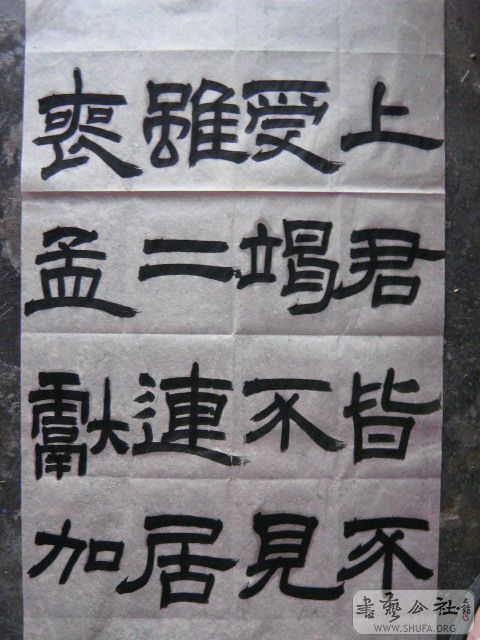 上君皆不
受竭不見
雖二連居
喪孟獻加
書藝公社
WWW.SHUFA.ORG